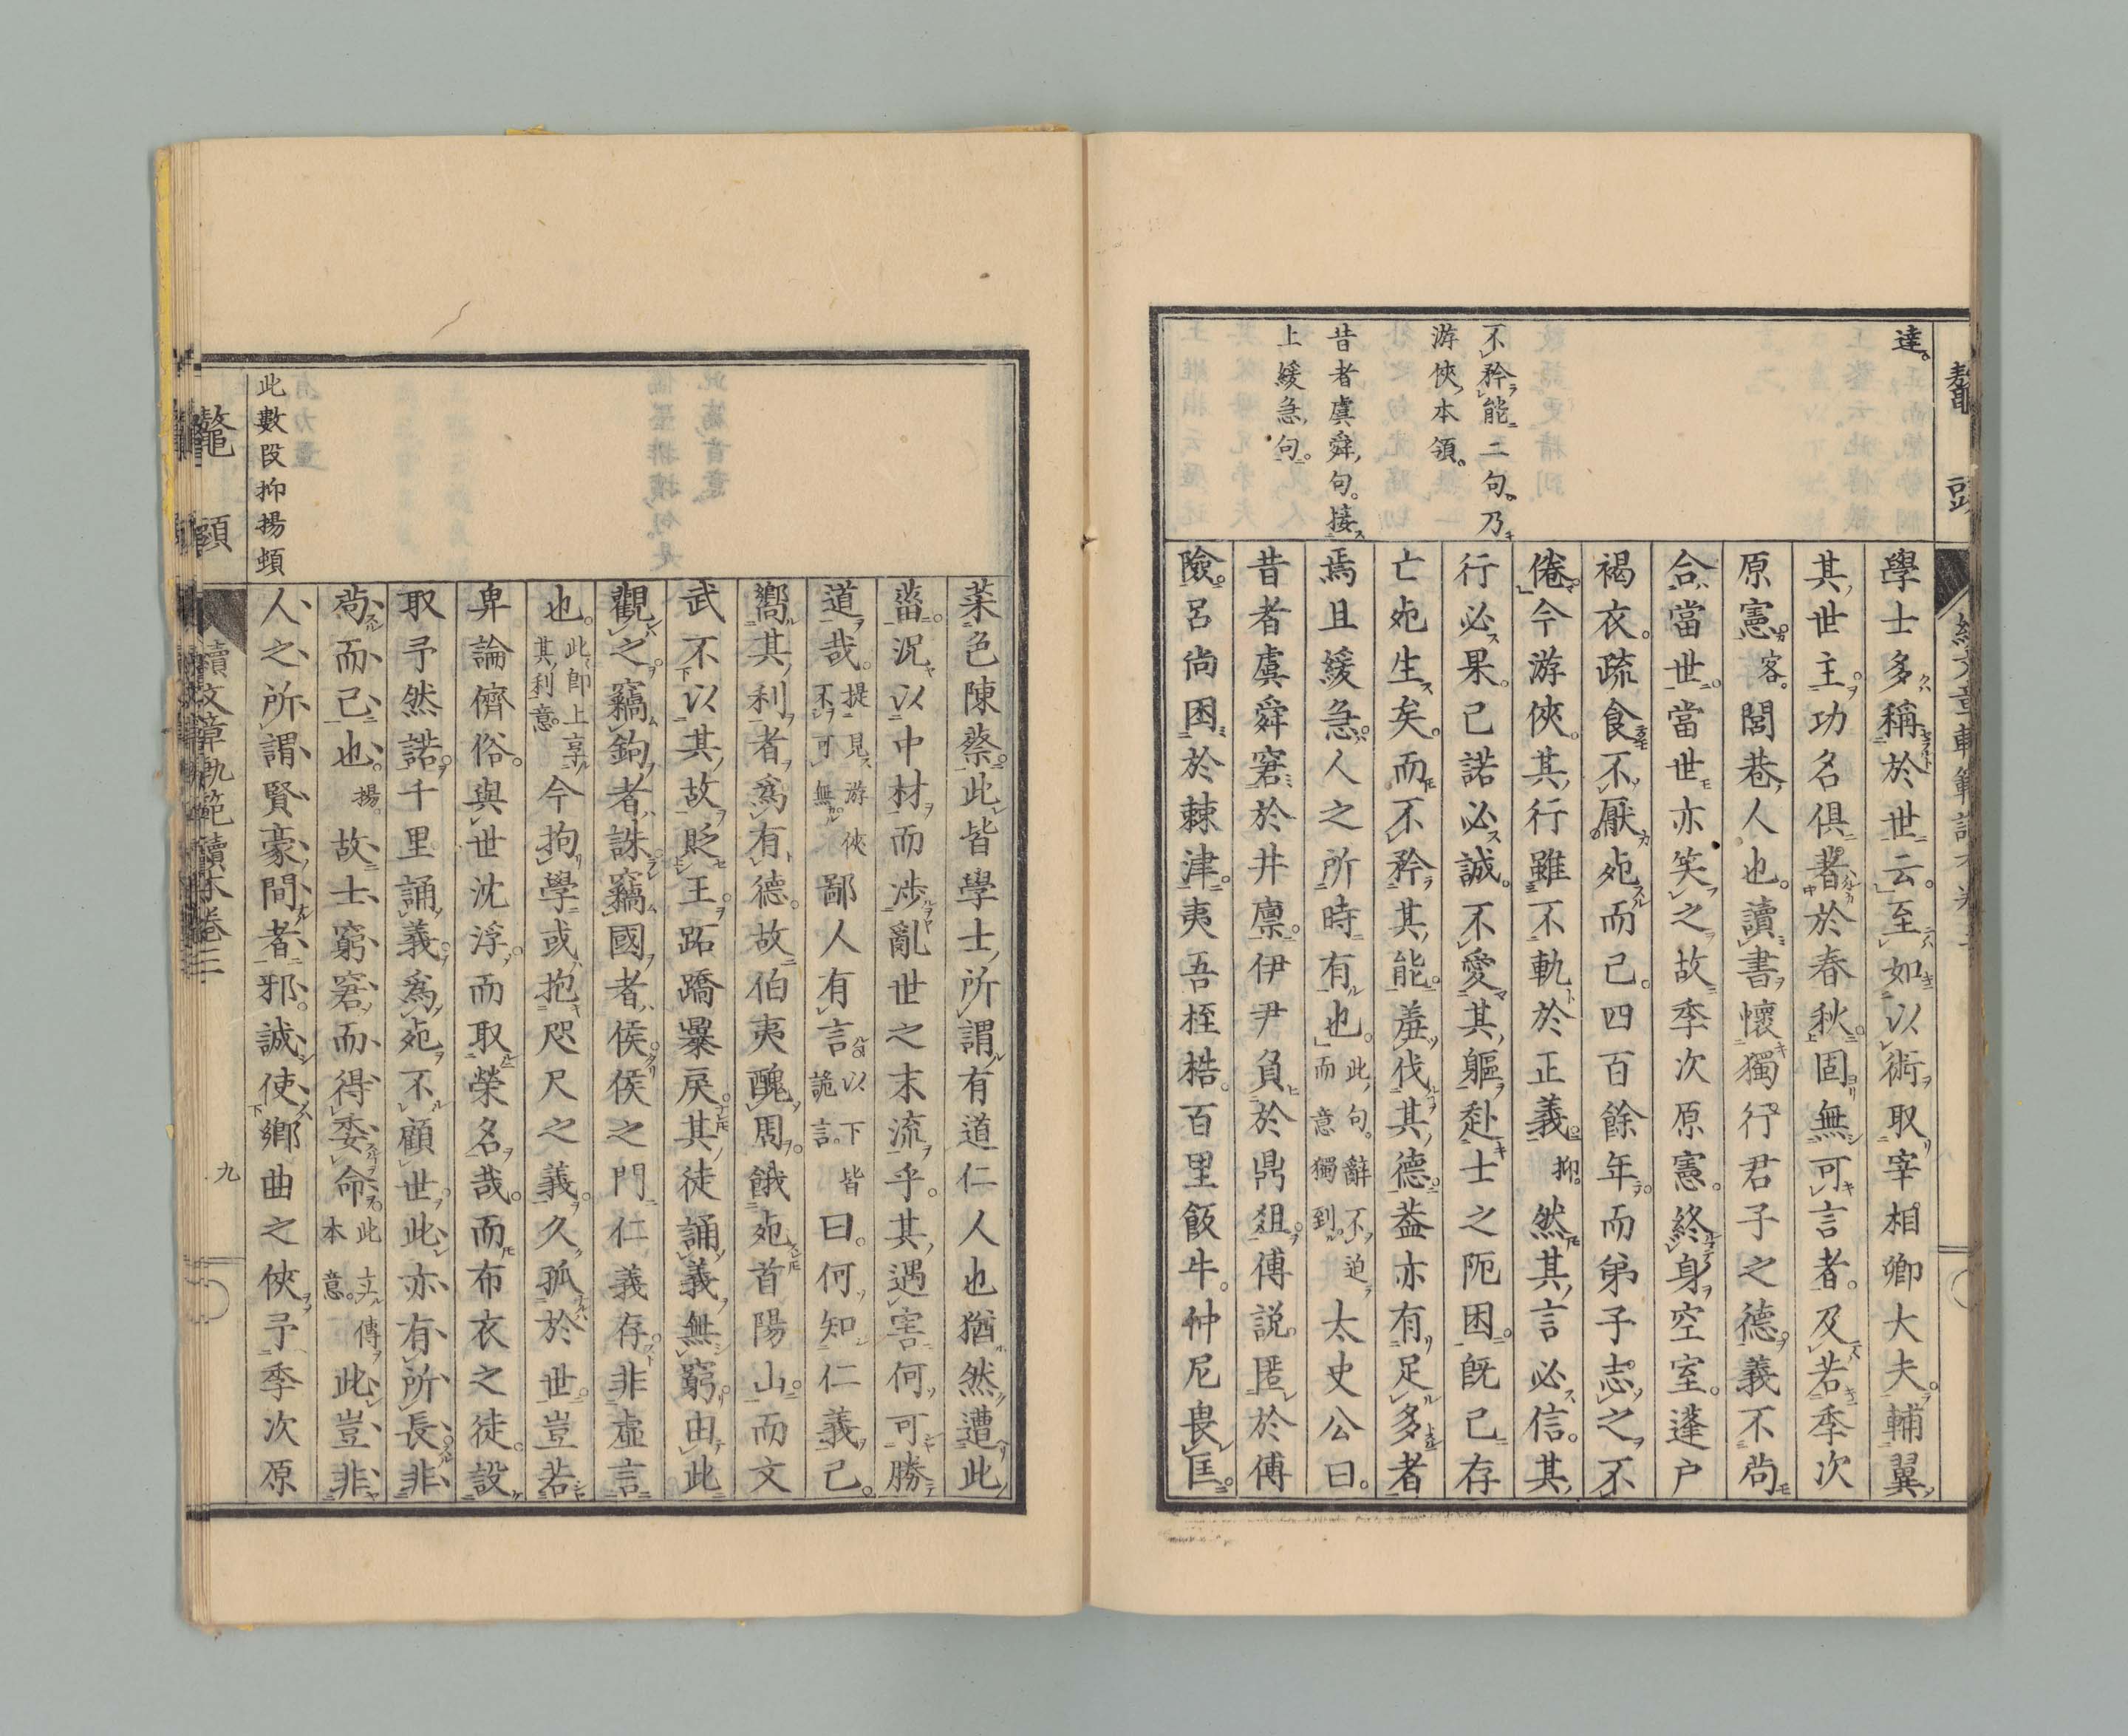 鼇頭
達。
不矜能二句。乃
游俠本領。
昔者虞舜句。接
上緩急句。
學士多稱於世云。至如以術取宰相卿大夫。輔翼
其世主。功名俱著於春秋。固無可言者。及若季次
原憲。客。閭巷人也。讀書懷獨行君子之德。義不苟
合當世。當世亦笑之。故季次原憲。終身空室。蓬戶
褐衣。疏食不厭。死而已。四百餘年。而弟子志之不
倦。今游俠。其行雖不軌於正義。抑。然其言必信。其
行必果。已諾必誠。不愛其軀。赴士之阨困。既已存
亡死生矣。而不矜其能。羞伐其德。蓋亦有足多者
焉。且緩急。人之所時有也。此句。辭不迫而意獨到。太史公曰。
昔者虞舜窘於井廩。伊尹負於鼎俎。傅說匿於傅
險。呂尚困於棘津。夷吾桎梏。百里飯牛。仲尼畏匡。
菜色陳蔡。此皆學士所謂有道仁人也。猶然遭此
菑。況以中材而涉亂世之末流乎。其遇害何可勝
道哉。提見游俠不可無。鄙人有言以下皆詭言。曰。何知仁義。已
嚮其利者爲有德。故伯夷醜周。餓死首陽山。而文
武不以其故貶王。跖蹻暴戾。其徒誦義無窮。由此
觀之。竊鉤者誅。竊國者侯。侯之門仁義存。非虛言
也。此即上享其利意。今拘學或抱咫尺之義。久孤於世。豈若
卑論儕俗。與世沈浮。而取榮名哉。而布衣之徒。設
取予然諾。千里誦義。爲死不顧世。此亦有所長。非
苟而已也。揚。故士窮窘而得委命。此立傳本意。此豈非
人之所謂賢豪間者邪。誠使鄉曲之俠。予季次原
此數段抑揚頓
鼇頭
續文章軌範讀本卷三
九